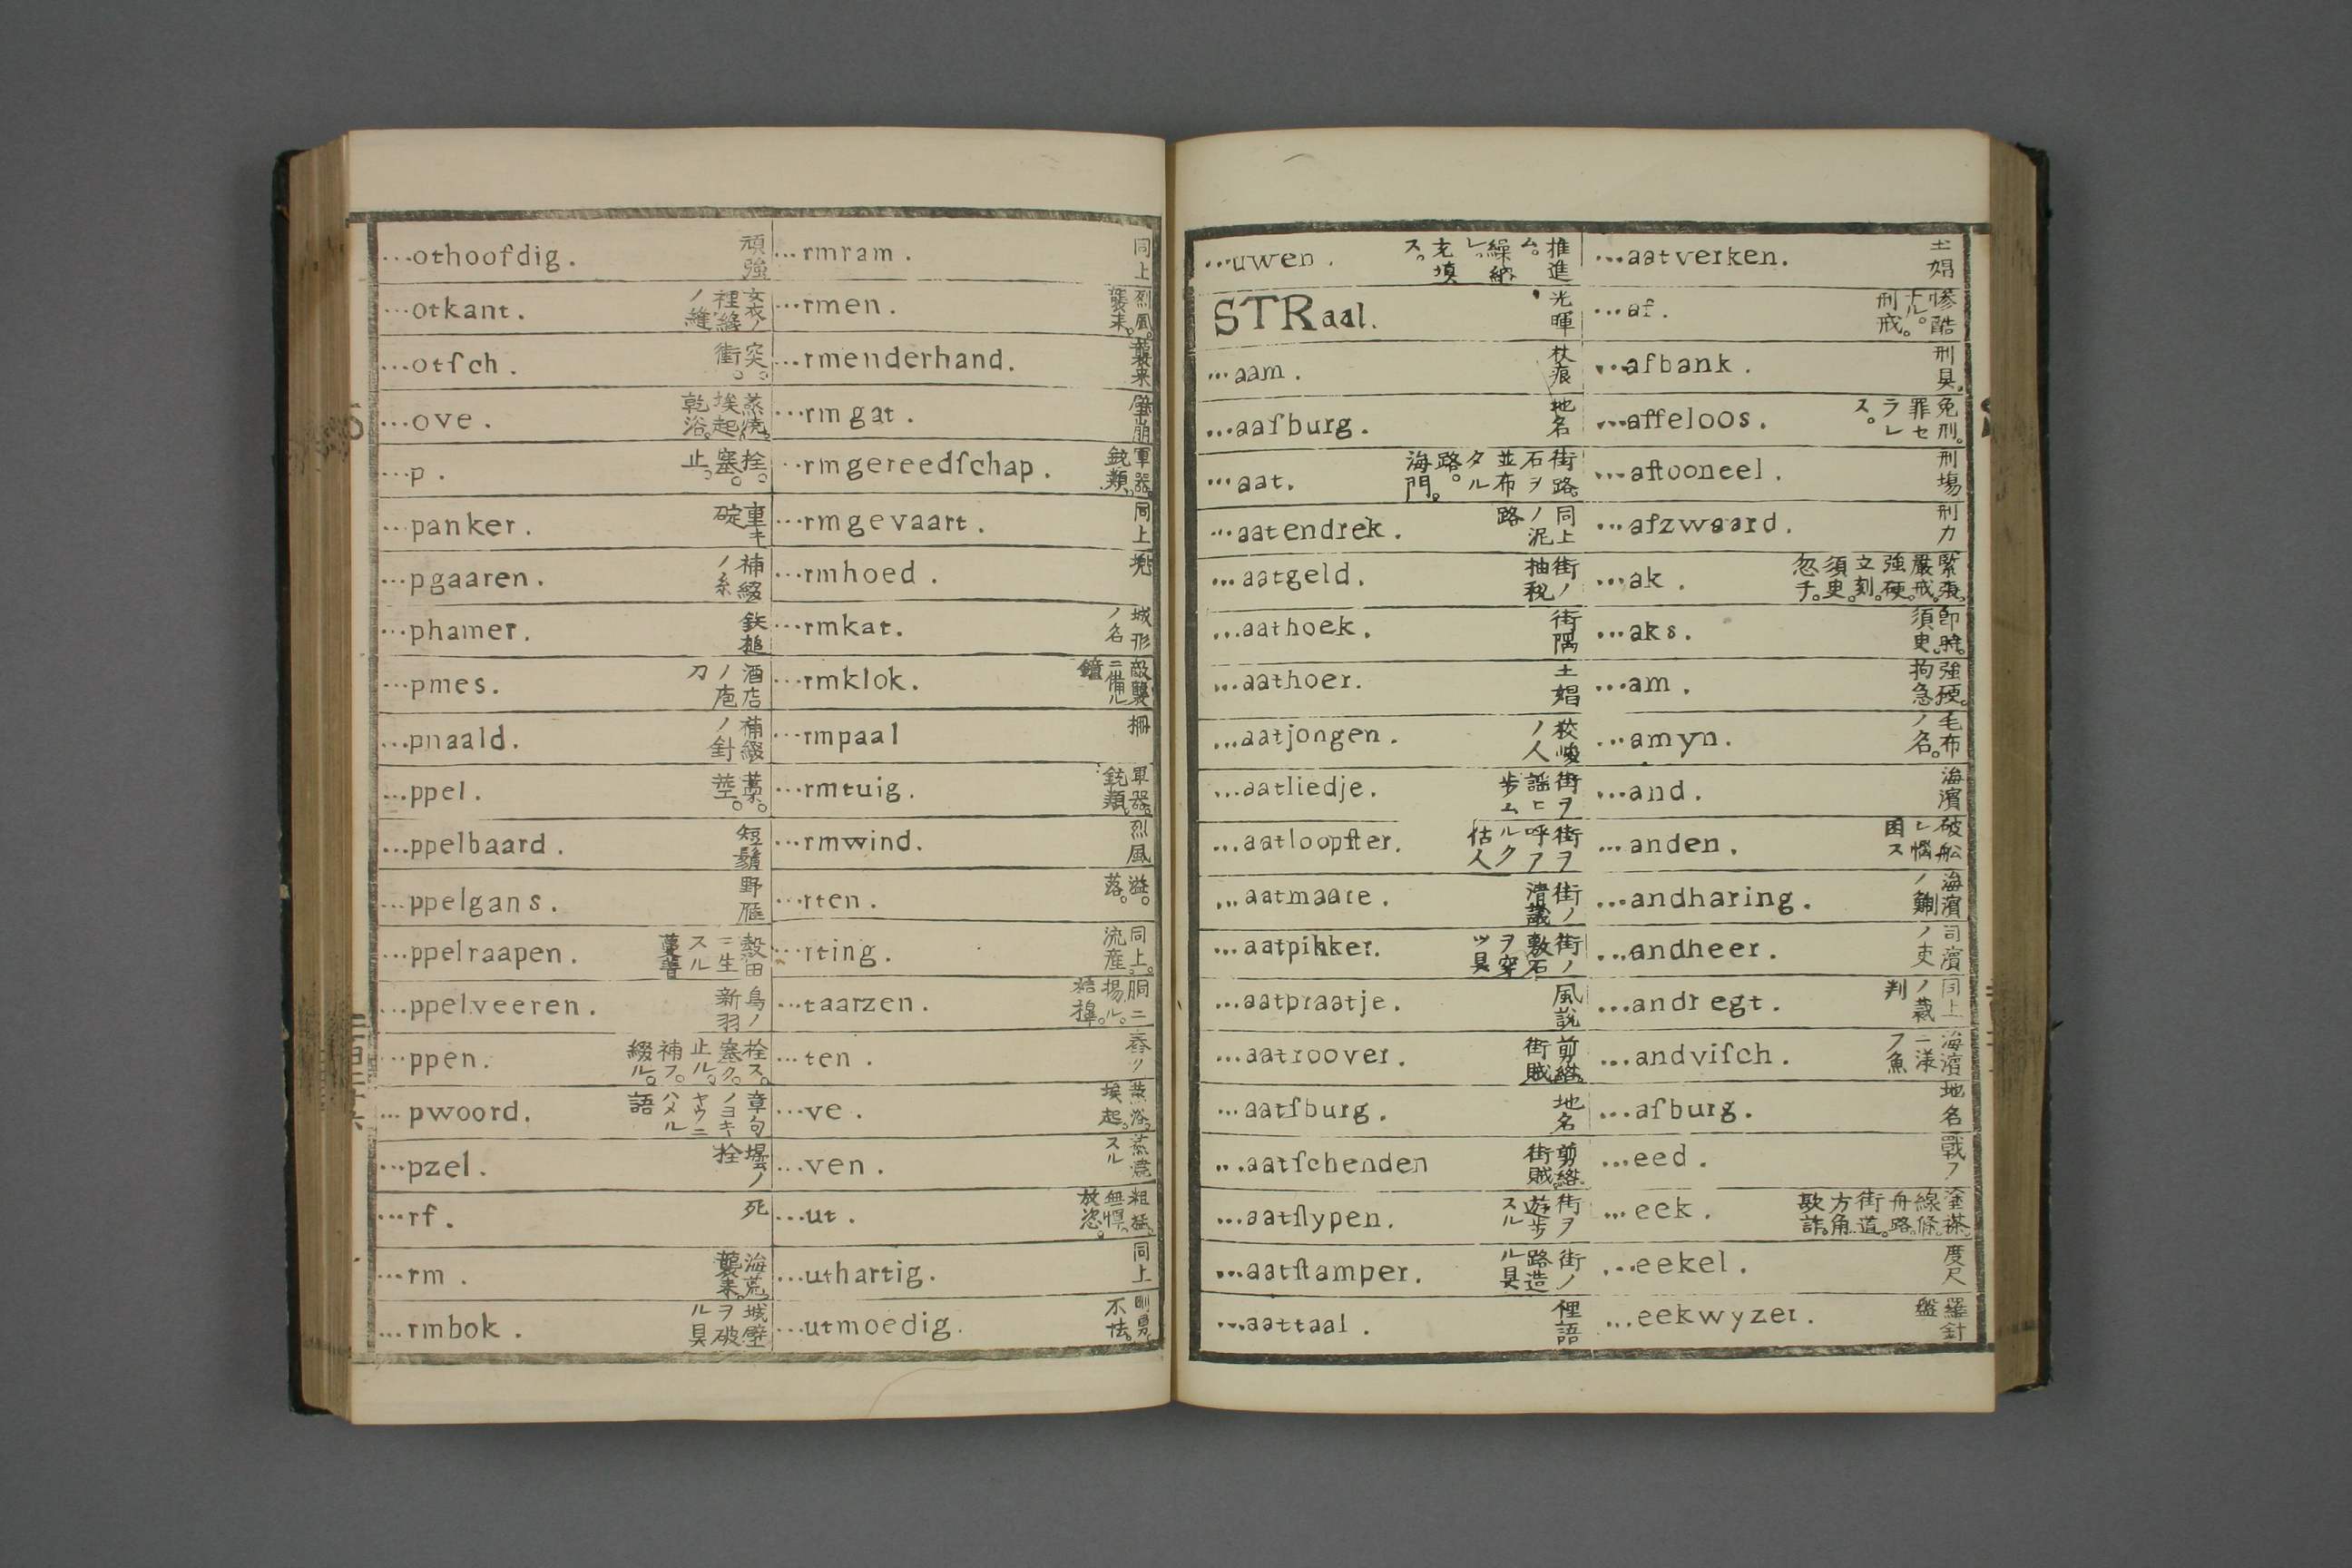 ...othoofdig. 頑強
...otkant. 女衣ノ裡縁ノ縫
...otſch. 突。衝。
...ove. 蒸焼。埃起。乾浴。
...p. 拴。塞。止。
...panker. 重キ碇
...pgaaren. 補綴ノ糸
...phamer. 鉄槌
...pmes. 酒店ノ庖刀
...pnaald. 補綴ノ針
...ppel. 藁。茎。
...ppelbaard. 短鬚
...ppelgans. 野雁
...ppelraapen. 穀田ニ生スル蔓菁
...ppelveeren. 鳥ノ新羽
...ppen. 拴ス。塞ク。止ル。補フ。綴ル。
...pwoord. 章句ノヨキヤウニハメル語
...pzel. 拴
...rf. 死
...rm. 海荒。襲来。
...rmbok. 城壁ヲ破ル具
...rmram. 同上
...rmen. 烈風。襲来。
...rmenderhand. 襲来
...rmgat. 壁崩
...rmgereedſchap. 軍器。銃類。
...rmgevaart. 同上
...rmhoed. 兜
...rmkat. 城形ノ名
...rmklok. 敵襲ニ備ル鐘
...rmpaal 柵
...rmtuig. 軍器。銃類。
...rmwind. 烈風
...rten. 溢。落。
...rting. 同上。流産。
...taarzen. 揚ル。
...ten. 呑ク
...ve. 蒸浴。埃起。
...ven. 蒸焼スル
...ut. 粗猛。無惧。放恣。
...uthartig. 同上
...utmoedig. 剛勇。不怯。
...uwen. 推進ム。繰納レ。充填ス。
STRaal. 光暉
...aam. 杖痕
...aafburg. 地名
...aat. 街路。石ヲ並布タル路。海門。
...aatendrek. 同上ノ泥路
...aatgeld. 街ノ抽税
...aathoek. 街隅
...aathoer. 土娼
...aatjongen. 狡ノ人
...aatliedje. 街ヲ謡ヒ歩ム
...aatloopſter. 街ヲ呼アルク估人
...aatmaare. 街ノ清議
...aatpikker. 街ノ敷石ヲ穿ツ具
...aatpraatje. 風説
...aatroover. 剪綹。街賊
...aatſburg. 地名
...aatſchenden 剪綹。街賊
...aatſlypen. 街ヲ遊歩スル
...aatſtamper. 街ノ路造ル具
...aattaal. 俚語
...aatverken. 土娼
...af. 惨酷ナル。刑戒。
...afbank. 刑具。
...affeloos. 免刑。罪セラレス。
...aftooneel. 刑場
...afzwaard. 刑刀
...ak. 緊張。嚴戒。強硬。立刻。須臾。忽チ。
...aks. 即時。須臾。
...am. 強硬。拘急。
...amyn. 毛布ノ名。
...and. 海濱
...anden. 破舩レ悩困ス
...andharing. 海濱ノ鯯
...andheer. 司濱ノ吏
...andregt. 同上ノ裁判
...andviſch. 海濱ニ漾フ魚
...afburg. 地名
...eed. 戰フ
...eek. 塗搽。線條。舟路。街道。方角。欺詐。
...eekel. 度尺
...eekwyzer. 羅針盤